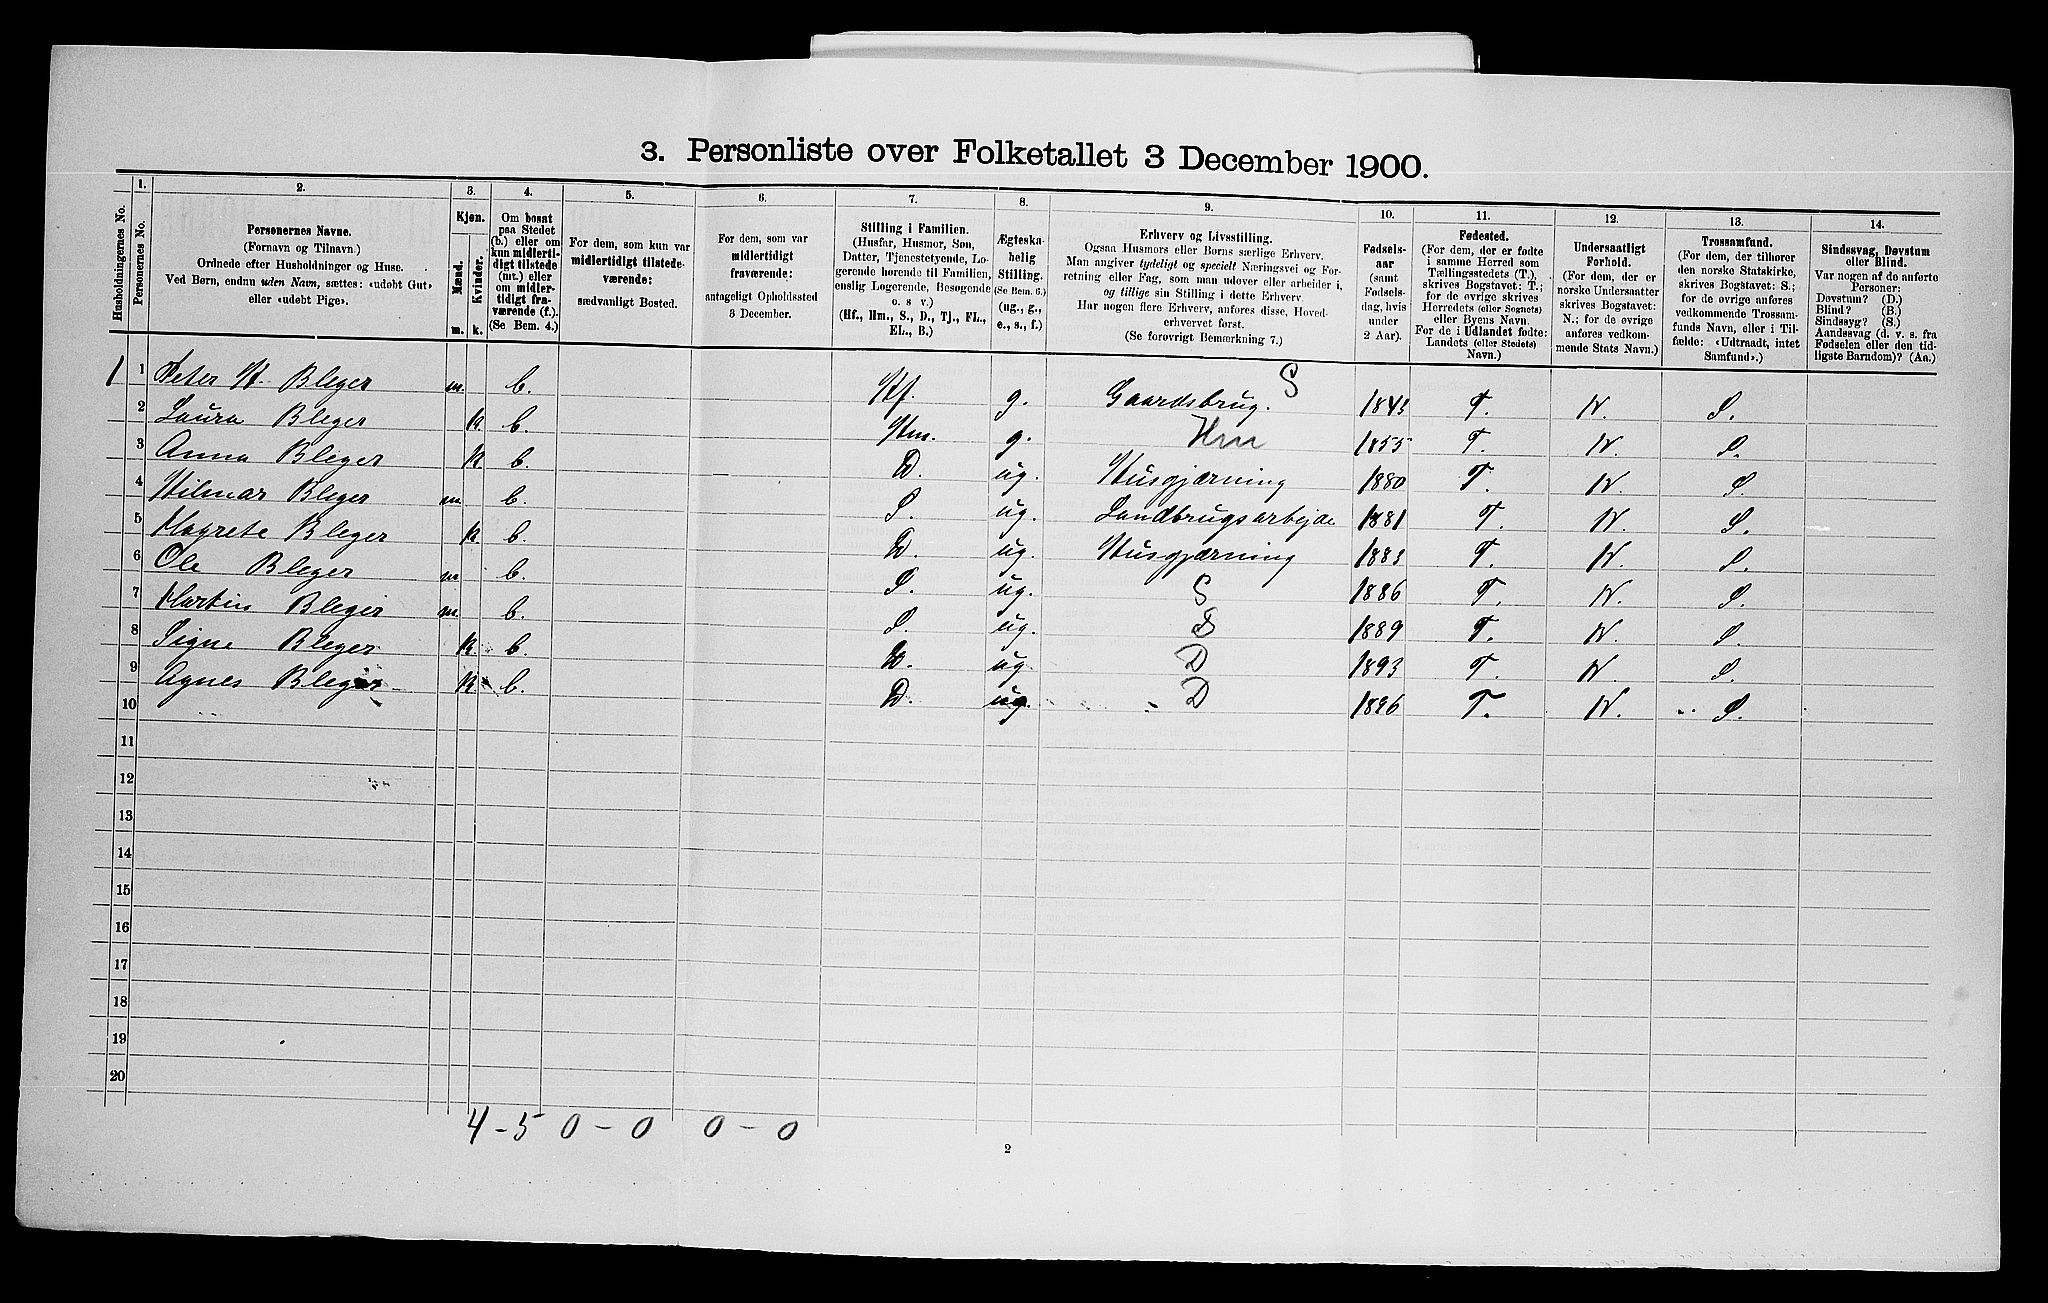 3. Personliste over Folketallet 3 December 1900.
Husholdningernes No.
1. Personernes No.
2. Personernes Navne. (Fornavn og Tilnavn.) Ordnede efter Husholdninger og Huse. Ved Børn, endnu uden Navn, sættes: «udøbt Gut» eller «udøbt Pige».
3. Kjøn. Mænd. m. Kvinder. k.
4. Om bosat paa Stedet (b.) eller om kun midlertidigt tilstede (mt.) eller om midlertidigt fraværende (f.). (Se Bem. 4.)
5. For dem, som kun var midlertidigt tilstedeværende: sædvanligt Bosted.
6. For dem, som var midlertidigt fraværende: antageligt Opholdssted 3 December.
7. Stilling i Familien. (Husfar, Husmor, Søn, Datter, Tjenestetyende, Logerende hørende til Familien, enslig Logerende, Besøgende o. s v.) (Hf., Hm., S., D., Tj., FL., EL., B.)
8. Ægteskabelig Stilling. (Se Bem. 6.) (ug., g., e., s., f.)
9. Erhverv og Livsstilling. Ogsaa Husmors eller Børns særlige Erhverv. Man angiver tydeligt og specielt Næringsvei og Forretning eller Fag, som man udøver eller arbeider i, og tillige sin Stilling i dette Erhverv. Har nogen flere Erhverv, anføres disse, Hovederhvervet først. (Se forøvrigt Bemærkning 7.)
10. Fødselsaar (samt Fødselsdag, hvis under 2 Aar).
11. Fødested. (For dem, der er fødte i samme Herred som Tællingsstedets (T.), skrives Bogstavet: T.; for de øvrige skrives Herredets (eller Sognets) eller Byens Navn. For de i Udlandet fødte: Landets (eller Stedets) Navn.)
12. Undersaatligt Forhold. (For dem, der er norske Undersaatter skrives Bogstavet: N.; for de øvrige anføres vedkommende Stats Navn.)
13. Trossamfund. (For dem, der tilhører den norske Statskirke, skrives Bogstavet: S.; for de øvrige anføres vedkommende Trossamfunds Navn, eller i Tilfælde: «Udtraadt, intet Samfund».)
14. Sindssvag, Døvstum eller Blind. Var nogen af de anførte Personer: Døvstum? (D.) Blind? (B.) Sindssyg? (S.) Aandssvag (d. v. s. fra Fødselen eller den tidligste Barndom)? (Aa.)
1 1 Peter H. Bleger m. b. Hf. g. Gaardsbrug. S 1843 T. N. S.
2 Laura Bleger k. b. Hm. g. Hm 1855 T. N. S.
3 Anna Bleger k b. D. ug. Husgjærning 1880 T. N. S.
4 Hilmar Bleger m. b. S. ug. Landbrugsarbejde 1881 T. N. S.
5 Magrete Bleger k. b. D. ug. Husgjærning 1883 T. N. S.
6 Ole Bleger m b. S. ug. S 1886 T. N. S.
7 Martin Bleger m. b. S. ug. S 1889 T. N. S.
8 Signe Bleger k. b. D. ug. D 1893 T. N. S.
9 Agnes Bleger k b. D. ug. D 1896 T. N. S.
10
11
12
13
14
15
16
17
18
19
20
4 - 5 0 - 0 0 - 0
2